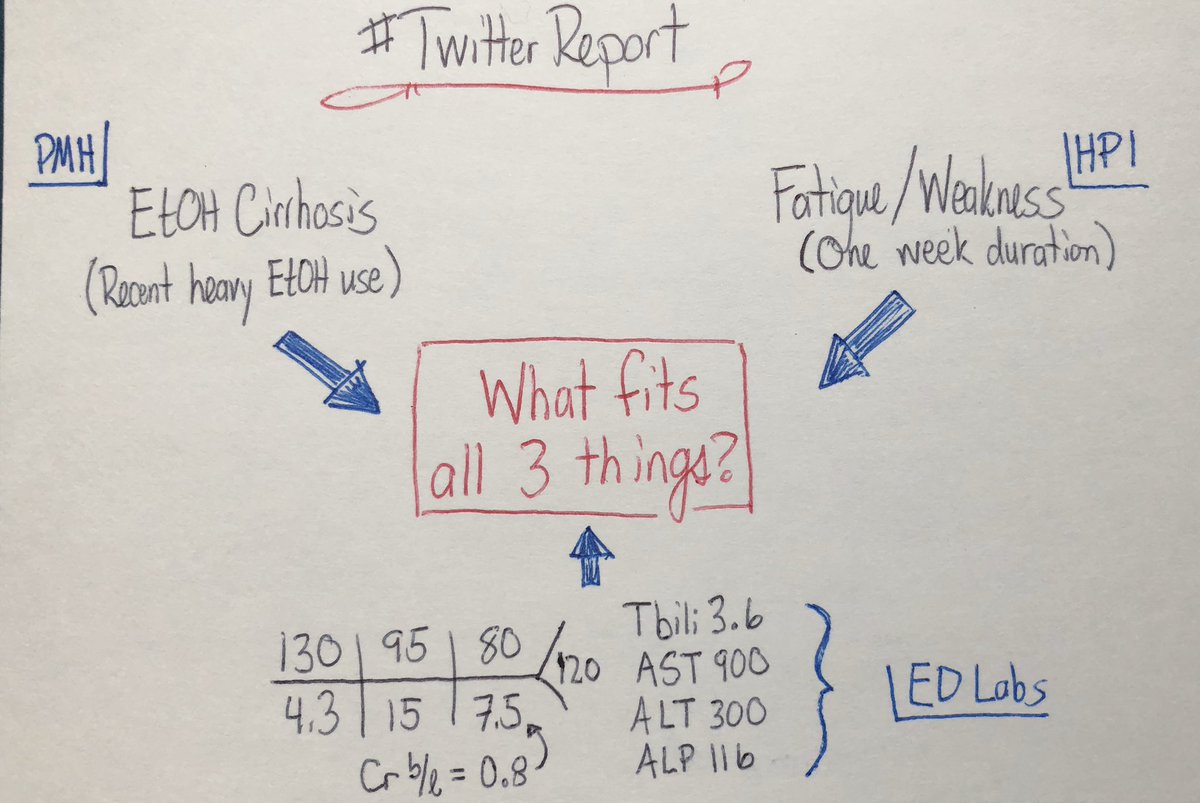 #TwitterReport
PMH
EtOH Cirrhosis
(Recent heavy EtOH use)
HPI
Fatigue/Weakness
(One week duration)
What fits
all 3 things?
130 | 95 | 80 / 120
4.3 | 15 | 7.5
Cr b/l = 0.8
Tbili 3.6
AST 900
ALT 300
ALP 116
ED Labs